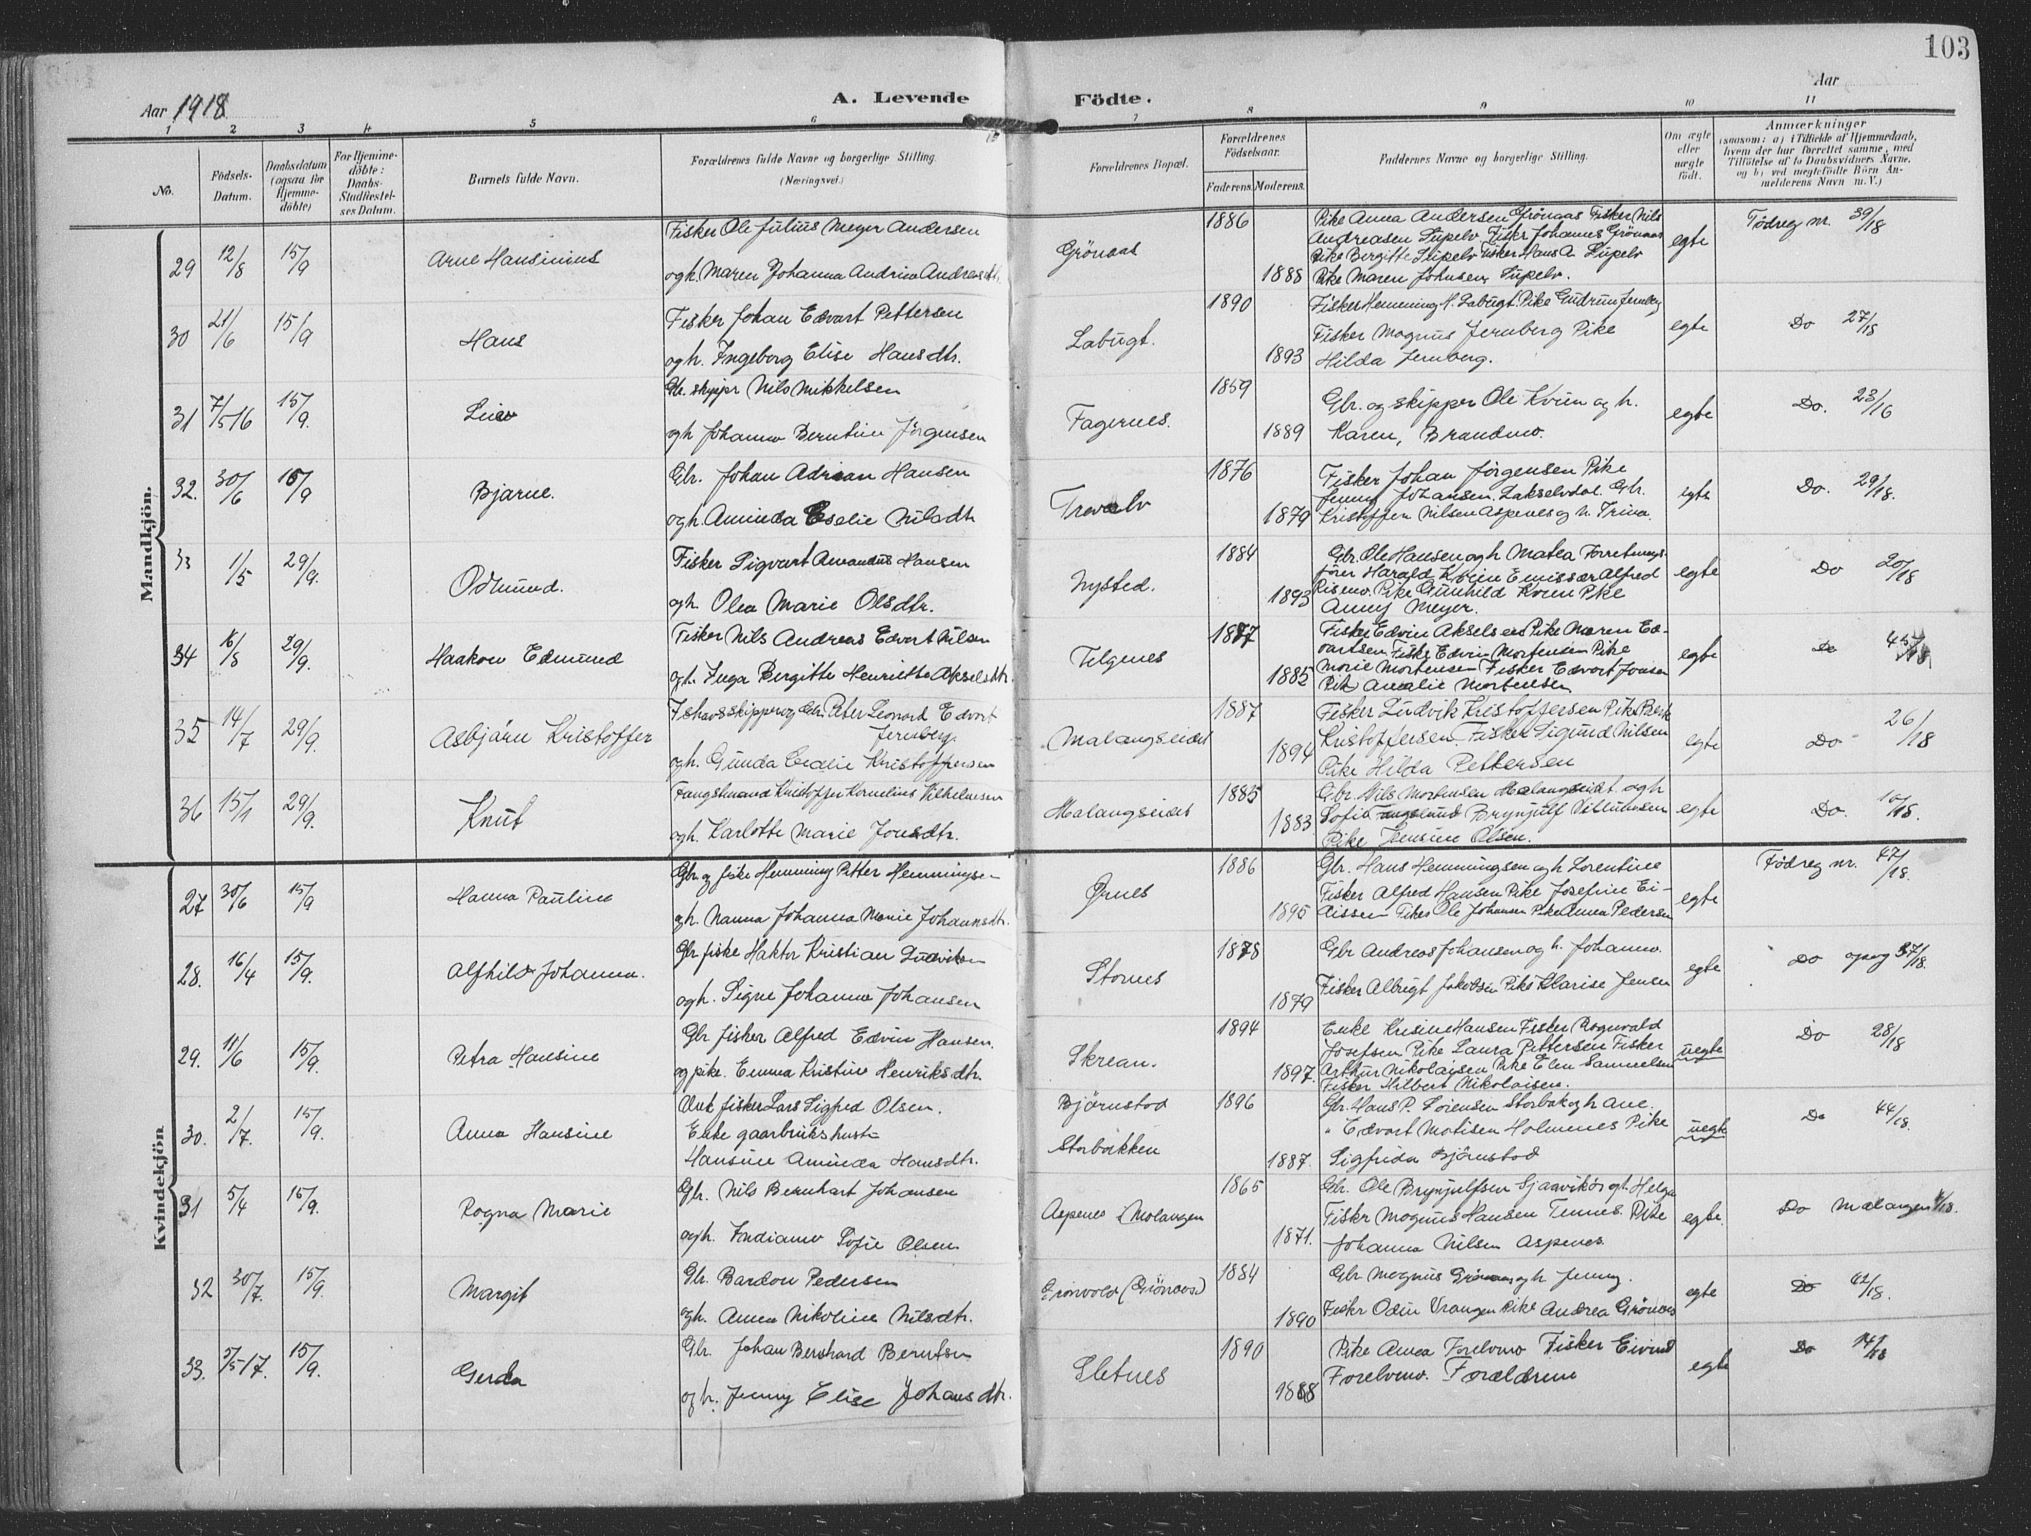 103
Aar 1918
A. Levende Födte.
Aar
1 2 3 4 5 6 7 8 9 10 11
No.
Födsels-Datum.
Daabsdatum (ogsaa for Hjemme-döbte)
For Hjemme-döbte: Daabs-Stadfæstel-ses Datum.
Barnets fulde Navn.
Forældrenes fulde Navne og borgerlige Stilling.
(Næringsvei.)
Forældrenes Bopæl.
Forældrenes Födselsaar.
Faderens. Moderens.
Faddernes Navne og borgerlige Stilling.
Om ægte eller uægte födt.
Anmærkninger
(saasom: a) i Tilfælde af Hjemmedaab, hvem der har forrettet samme, med Tilföielse af to Daabsvidners Navne, og b) ved uægtefödte Börn An-melderens Navn m. V.)
Mandkjön.
29 12/8 15/9 Arne Hansinius
Fisker Ole Julius Meyer Andersen
ogh. Maren Johanna Andrine Andreasdtr.
Grönaas 1886 1888
Pike Anna Andersen Grönaas Fisker Nils
Andreasen Süpelv Fisker Johannes Grönaas
Pike Birgitte Süpelv Fisker Hans A. Süpelv
Pike Maren Johnsen, Süpelv.
egte Födreg nr. 39/18
30 21/6 15/9 Hans
Fisker Johan Edvart Pettersen
ogh. Ingeborg Elise Hansdtr.
Labugt. 1890 1893
Fisker Hemming H. Labugt. Pike Gudrun Jernberg
Fisker Magnus Jernberg Pike
Hilda Jernberg.
egte Do 27/18
31 7/5 16 15/9.
Gbr. skippr Nils Mikkelsen
ogh Johanne Berntine Jörgensen
Fagernes. 1859 1889
Gbr. og skipper Ole Kvien og h.
Karen, Brandmo.
egte Do. 23/16
32. 30/6 15/9 Bjarne.
Gbr. Johan Adrian Hansen
ogh. Aminda Eselie Nilsdtr
Trovelv 1876 1879
Fisker Johan Jörgensen Pike
Jenny Johansen. Lakselvdal. Gbr.
Kristoffer Nilsen Aspenes og h. Trina.
egte Do. 29/18.
33 1/5 29/9. Odmund.
Fisker Sigvart Amandus Hansen
ogh. Olea Marie Olsdtr.
Nysted. 1884 1893
Gbr. Ole Hansen ogh Matea Forretnings-
förer Harald Kvien Emissær Alfred
Rismo. Pike Gunhild Kvien Pike
Anny Meyer.
egte Do 20/18
34 16/8 29/9. Haakon Edmund
Fisker Nils Andreas Edvart Nilsen
ogh. Inga Bergitte Henriette Akselsdtr.
Telgenes 1877 1885
Fisker Edvin Akselsen Pike Maren Ed-
vartsen Fisker Edvin Mortensen Pike
Marie Mortensen Fisker Edvart Jonsen
Pike Amalie Mortensen
egte Do
35 14/7 29/9. Asbjörn Kristoffer
Ishavsskipper og Gbr. Peter Leonart Edvart
Jernberg.
ogh. Gunda Cecelie Kristoffersen
Malangseidet 1887 1894
Fisker Ludvik Kristoffersen Pike
Kristoffersen. Fisker Sigurd Nilsen
Pike Hilda Pettersen
egte Do 26/18
36 15/1 29/9. Knut
Fangstmand Kristoffer Kornelius Vilhelmsen
ogh. Karlotte Marie Jonsdtr.
Malangseidet 1885 1883
Gbr. Nils Mortensen Malangseidet ogh
Sofie Brynjulf Vilhelmsen
Pike Jensine Olsen.
egte Do. 10/18.
Kvindekjön
27 30/6 15/9 Hanna Pauline
Gbr. og fiske Hemming Petter Hemmingsen
gh. Nanna Johanna Marie Johannsdtr.
Ørnes 1886 1895
Gbr. Hans Hemmingsen ogh Lorentine
Fisker Alfred Hansen Pike Josefine Ei-
Fisker Ole Johansen Pike Anna Pedersen
egte Födreg nr. 47/18.
28. 16/4 15/9. Alfhild Johanna.
Gbr fiske Haktor Kristian Ludviksen
ogh. Signe Johanne Johansen
Stornes 1878 1879
Gbr Andreas Johansen og h. Johanne.
Fisker Albrigt Jakobsen Pike Klarise Jensen
egte Do 37/18.
29. 11/6 15/9. Petra Hansine
Gbr fisker Alfred Edvin Hansen.
og pike. Emma Kristine Henriksdtr.
Skrean. 1894 1897.
Enke Krisine Hansen Fisker Rognvald
Josefsen Pike Laura Pettersen Fisker
Arthur Nikolaisen Pike Elen Samuelsen
Fisker Hilbert Nikolaisen.
uegte Do 28/18
30. 2/7. 15/9. Anna Hansine
Ank fisker Lars Sigfred Olsen.
Enke gaarbrukshust
Hansine Aminda Hansdtr.
Björnstod
Storbakken
1896 1887.
Gbr. Hans P. Sörensen Storbak ogh Ane.
" Edvart Matisen Holmenes Pike
Sigfrida Björnstod
uegte Do 44/18.
31 5/4 15/9. Ragna Marie
Gbr. Nils Bernhart Johansen
ogh. Indiane Sofie Olsen
Aspenes i Malangen 1865 1871.
Gbr. Ole Brynjulfsen Sjaavikör ogh. Helga
Fisker Magnus Hansen Tennes. Pike
Johanna Nilsen Aspenes.
egte. Do Malangen
32 30/7. 15/9. Margit
Gbr. Bardon Pedersen
ogh. Anna Nikoline Nilsdtr.
Grönvold (Grönaas) 1884 1890
Gbr Magnus Grönaas ogh Jenny.
Fisker Odin Vrangen Pike Andrea Grönaas
egte Do 42/18.
33. 3/5 17. 15/9. Gerda
Gbr. Johan Bernhard Berntsen
og h. Jenny Elise Johansdtr.
Sletnes 1890 1888
Pike Anna Forelvmo Fisker Eivind
Forelvmo. Forældrene
egte Do 14/18